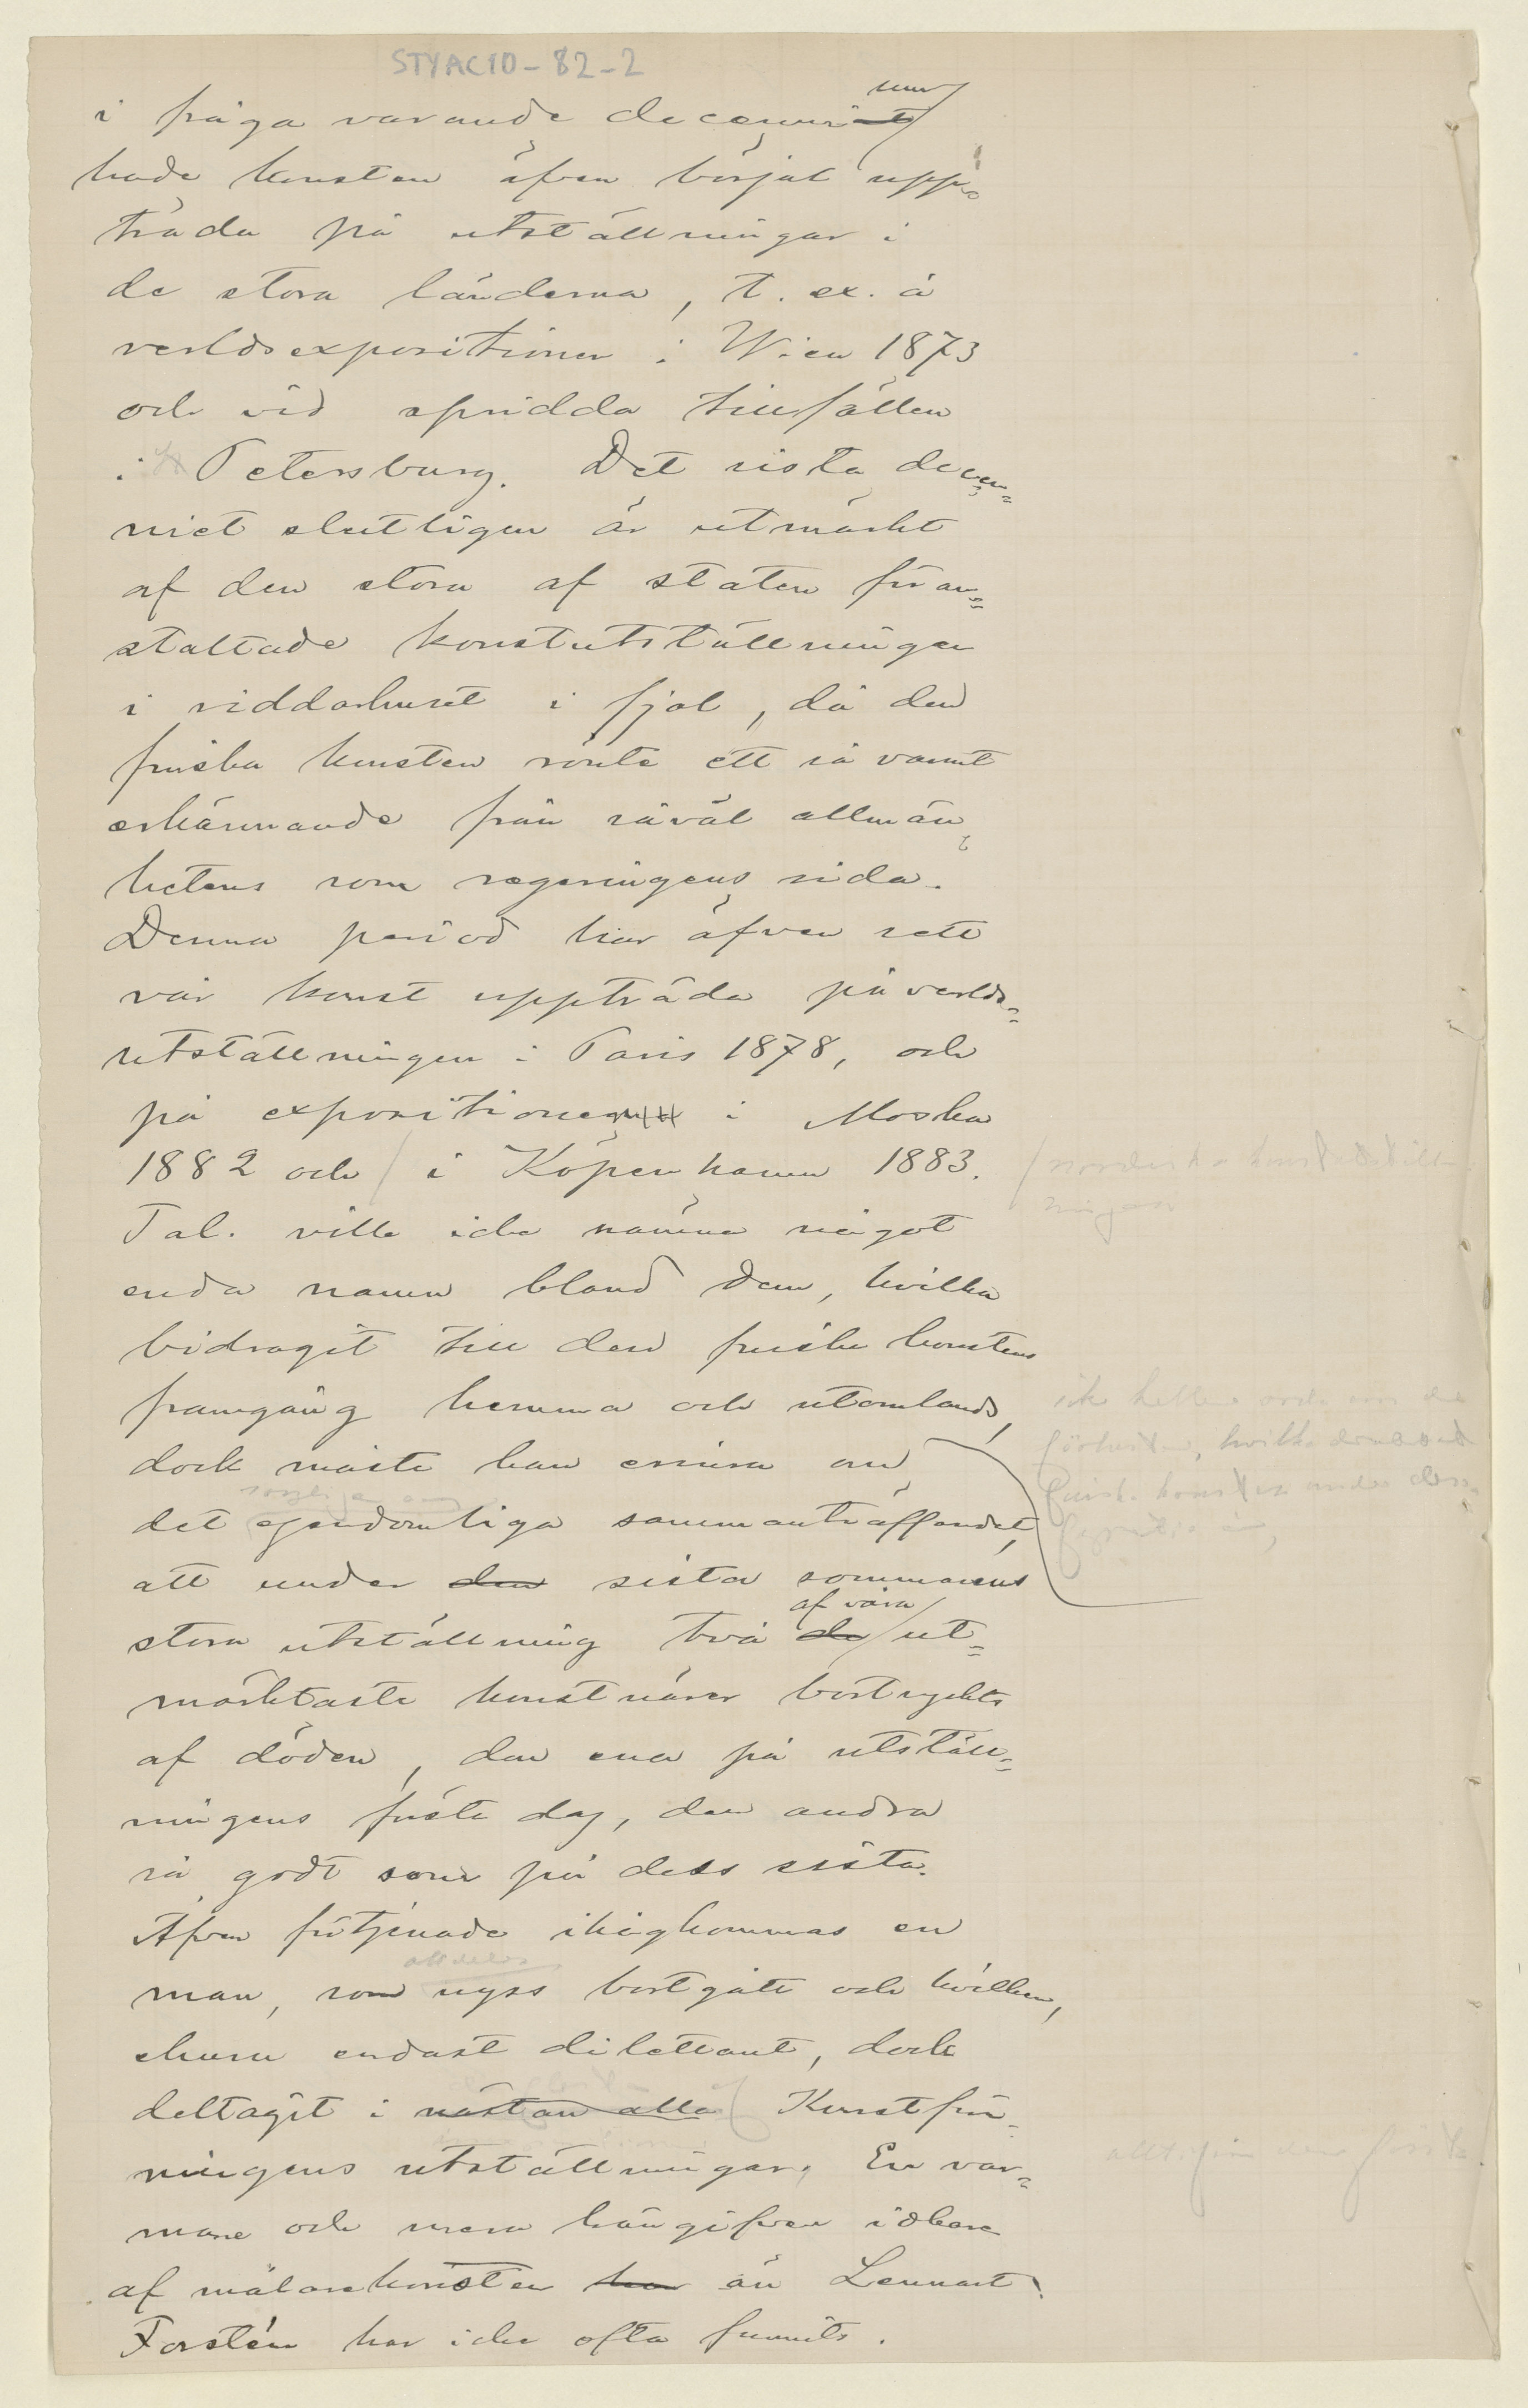 STYAC10-82-2
i fråga varande decenniet
nium
hade konsten äfven börjat upp-
träda på utställningar i
de stora länderna, t. ex. å
verldsexpositionen i Wien 1873
och vid spridda tillfällen
i Petersburg. Det sista decen-
niet slutligen är utmärkt
af den stora af staten föran-
staltade konstutställningen
i riddarhuset i fjol, då den
finska konsten rönte ett så varmt
erkännande från såväl allmän-
hetens som regeringens sida.
Denna period har äfven sett
vår konst uppträda på verlds-
utställningen i Paris 1878, och
på expositionerna i Moskva
1882 och / i Köpenhamn 1883.
/ nordiska konstutställ-
ningen
Tal. ville icke nämna något
enda namn bland dem, hvilka
bidragit till den finska konstens
framgång hemma och utomlands,
dock måste han erinra om
icke heller orda om de
förluster, hvilka drabbat
finska konsten under dess
sorgliga
det egendomliga sammanträffandet,
att under den sista sommarens
af våra
stora utställning två de ut-
märktaste konstnärer bortryckts
af döden, den ena på utställ-
ningens första dag, den andra
så godt som på dess sista.
Äfven förtjenade ihågkommas en
alldeles
man, som nyss bortgått och hvilken,
ehuru endast dilettant, dock
deltagit i nästan alla Konstför-
ningens utställningar. En var-
allt ifrån den första
mare och mera hängifven idkare
af målarekonsten har än Lennart
Forstén har icke ofta funnits.